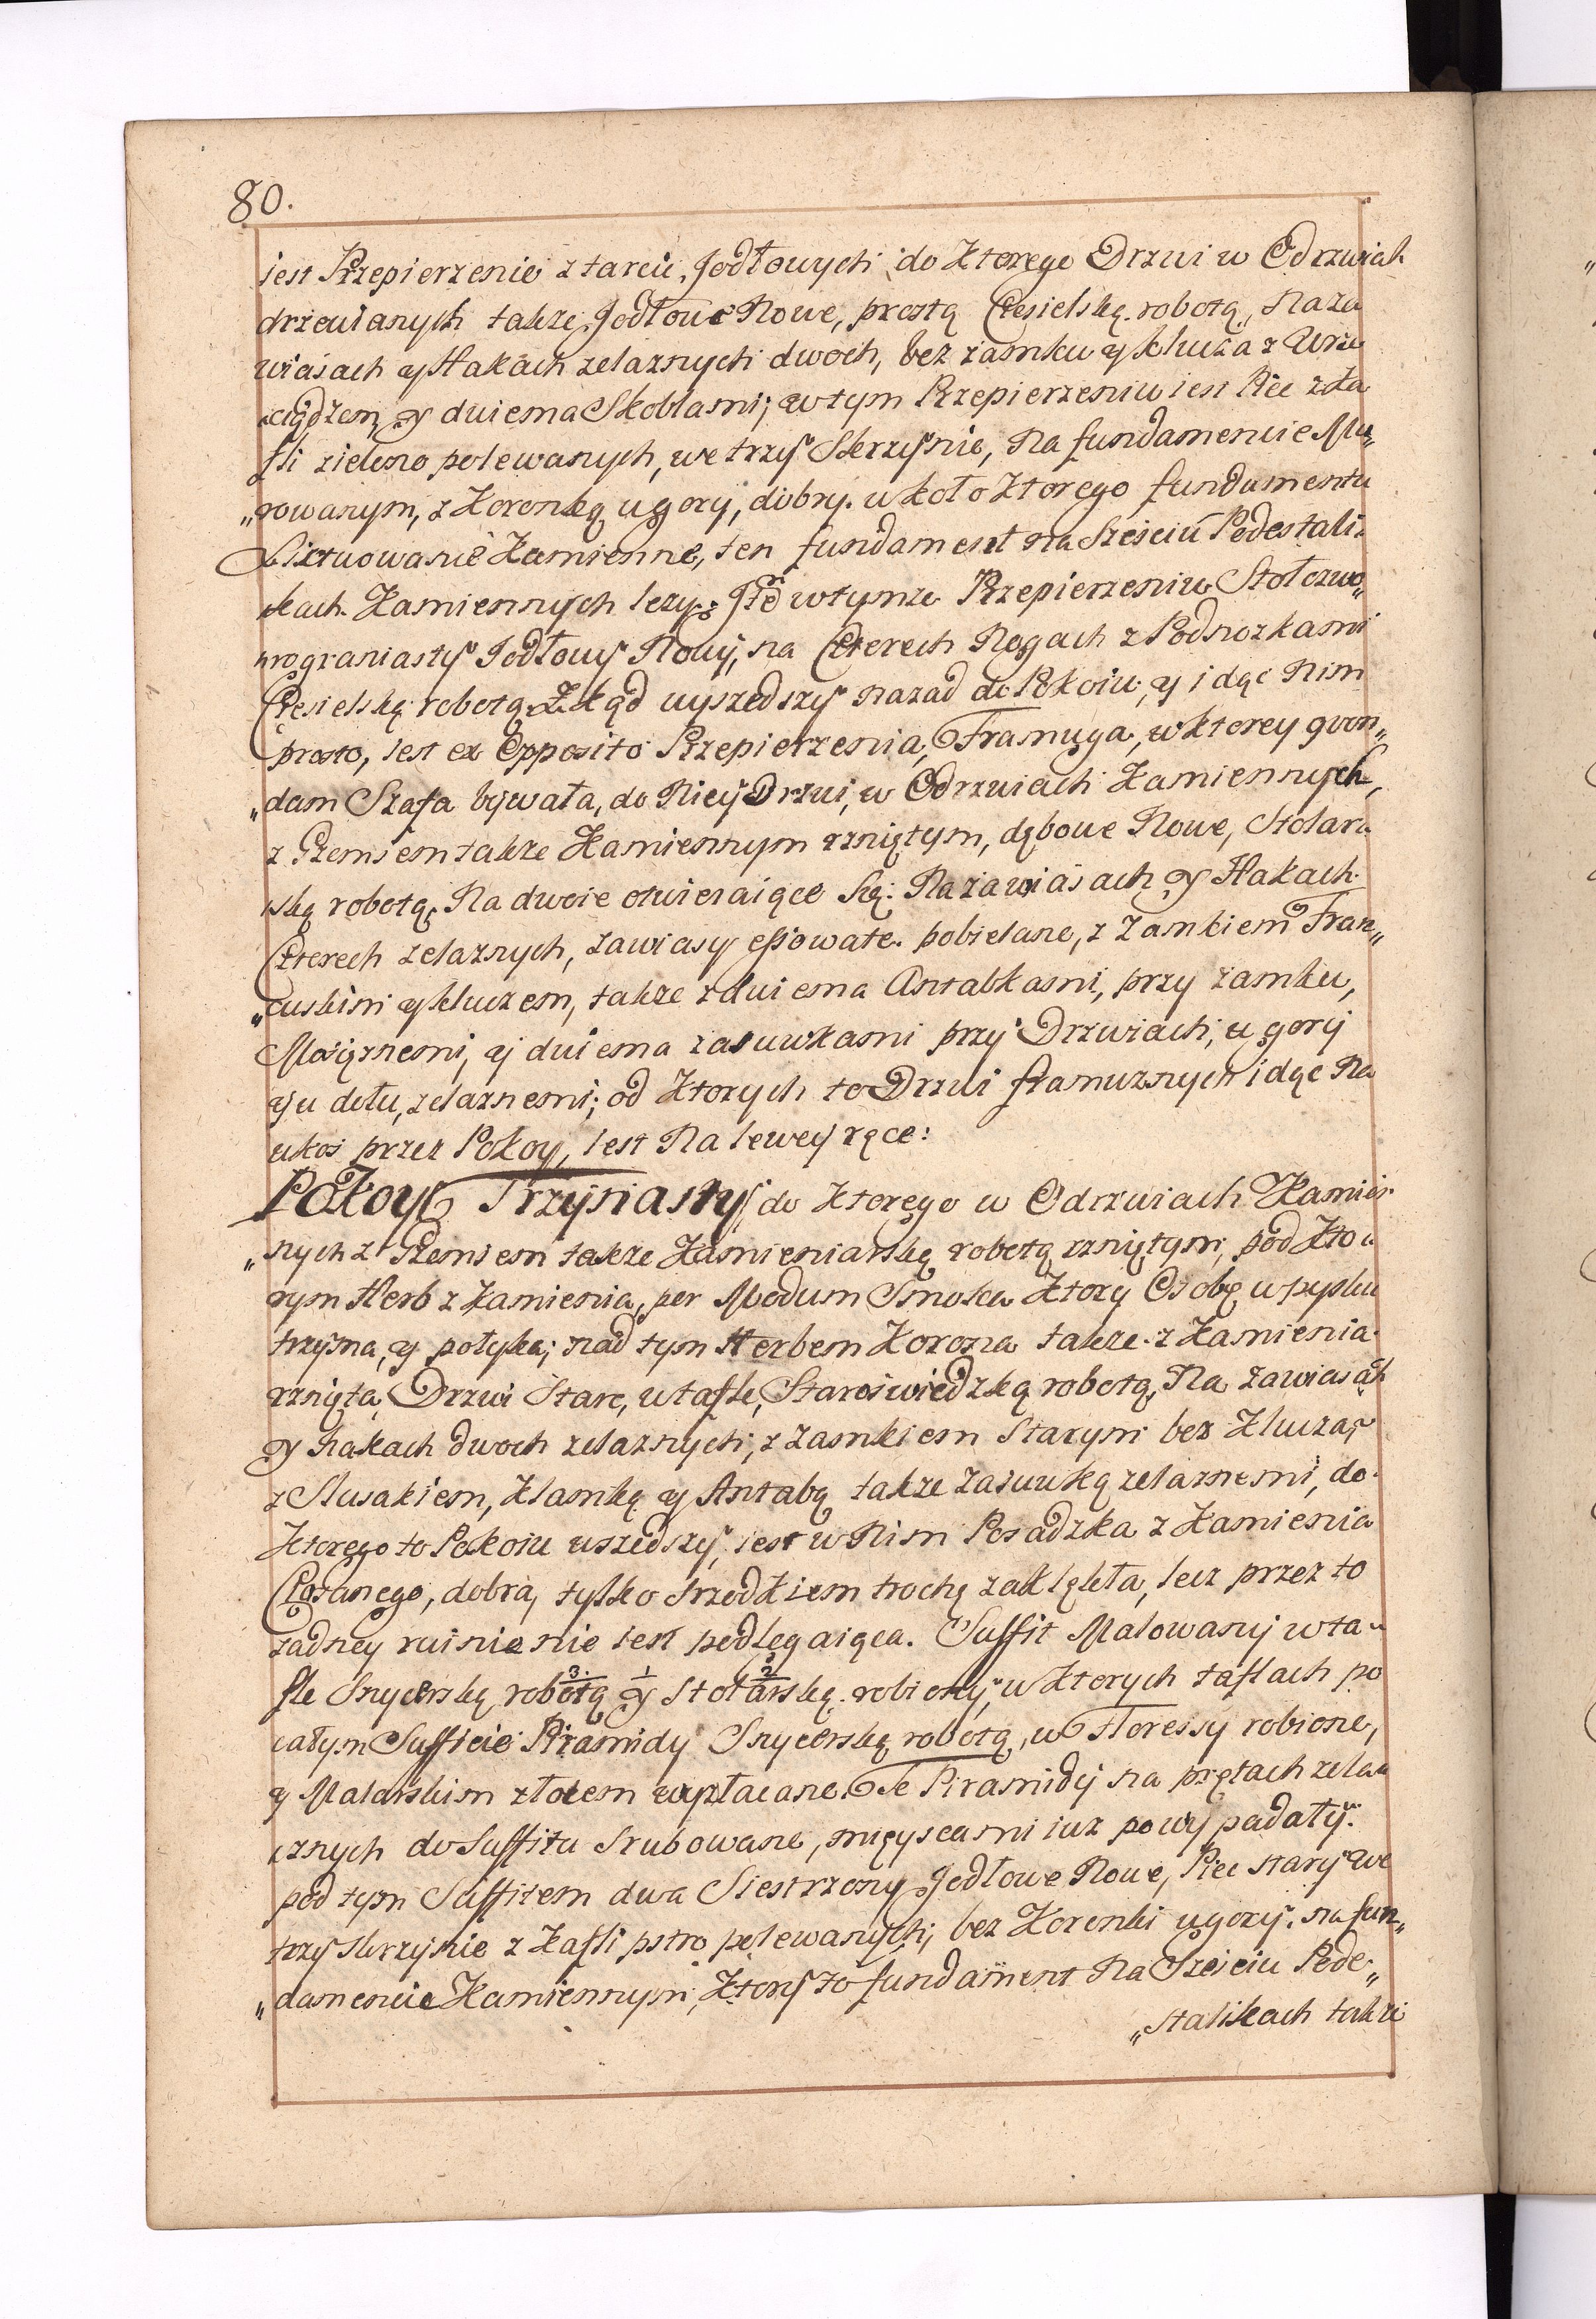 80.
iest Przepierzenie z tarcic Jodłowych do ktorego Drzwi w Odrzwiach
drzewianych także Jodłowe Nowe, prostą Ciesielską robotą, na za
wiasach y Hakach zelaznych dwoch, bez zamku y klucza z Wrze
ciądzem, y dwiema Skoblami; w tym Przepierzeniu iest Piec z ka
fli zielono polewanych, we trzy Skrzynie, na fundamencie Mu„
„rowanym, z Koronką u gory, dobry. w koło ktorego fundamentu
Lisztwowanie Kamienne, ten fundament na Sześciu Pedestali„
kach Kamiennych lezy. Jtem w tymze Przepierzeniu Stoł czwo„
rograniasty Jodłowy Nowy, na Czterech Nogach z Podnozkami
Ciesielską robotą. Zkąd wyszedszy nazad do Pokoiu, y idąc nim
prosto, iest ex Opposito Przepierzenia, Framuga, w ktorey qvon„
„dam Szafa bywała, do Niey Drzwi, w Odrzwiach Kamiennych,
z Gzemsem także Kamiennym rzniętym, dębowe Nowe, Stolar„
ską robotą, Na dwoie otwieraiące się: Na zawiasach y Hakach
Czterech zelaznych, zawiasy essowate pobielane, z Zamkiem Fran„
„cuskim y kluczem, także z dwiema Antabkami, przy zamku,
Mosięznemi, y dwiema zasuwkami przy Drzwiach, u gory
y u dołu, zelaznemi; od ktorych to Drzwi framuznych idąc Na
ukos przez Pokoy, iest Na lewey ręce:
Pokoy Trzynasty, do ktorego w Odrzwiach Kamien„
„nych z Gzemsem także Kamieniarską robotą rzniętym, pod kto„
rym Herb z kamienia, per Modum Smoka ktory Osobę w pysku
trzyma, y połyka; nad tym Herbem Korona także z kamienia
rznięta, Drzwi Stare, w tafle, Staroświedzką robotą, Na zawiasach
y hakach dwoch zelaznych, z Zamkiem Starym bez klucza,
z Slusakiem, klamką y Antabą także zasuwką zelaznemi, do
ktorego to Pokoiu wszedszy, iest w Nim Posadzka z kamienia
Ciosanego, dobra, tylko srzodkiem trochę zaklękła, lecz przez to
zadney ruinie nie iest podlegaiąca. Suffit Malowany w ta„
fle Snycerską robotą 3 y 1 Stolarską 2 robiony, w ktorych taflach po
całym Sufficie Piramidy Snycerską robotą, w Floressy robione,
y Malarskim złotem wyzłacane. Te Piramidy na prętach zela„
znych do Suffitu srubowane, mieyscami iuz powypadały.
pod tym Suffitem dwa Siestrzany Jodłowe Nowe, Piec stary we
trzy skrzynie z kafli pstro polewanych, bez Koronki u gory, na fun„
„damencie Kamiennym, ktory to fundament Na Sześciu Pede„
„stalikach także